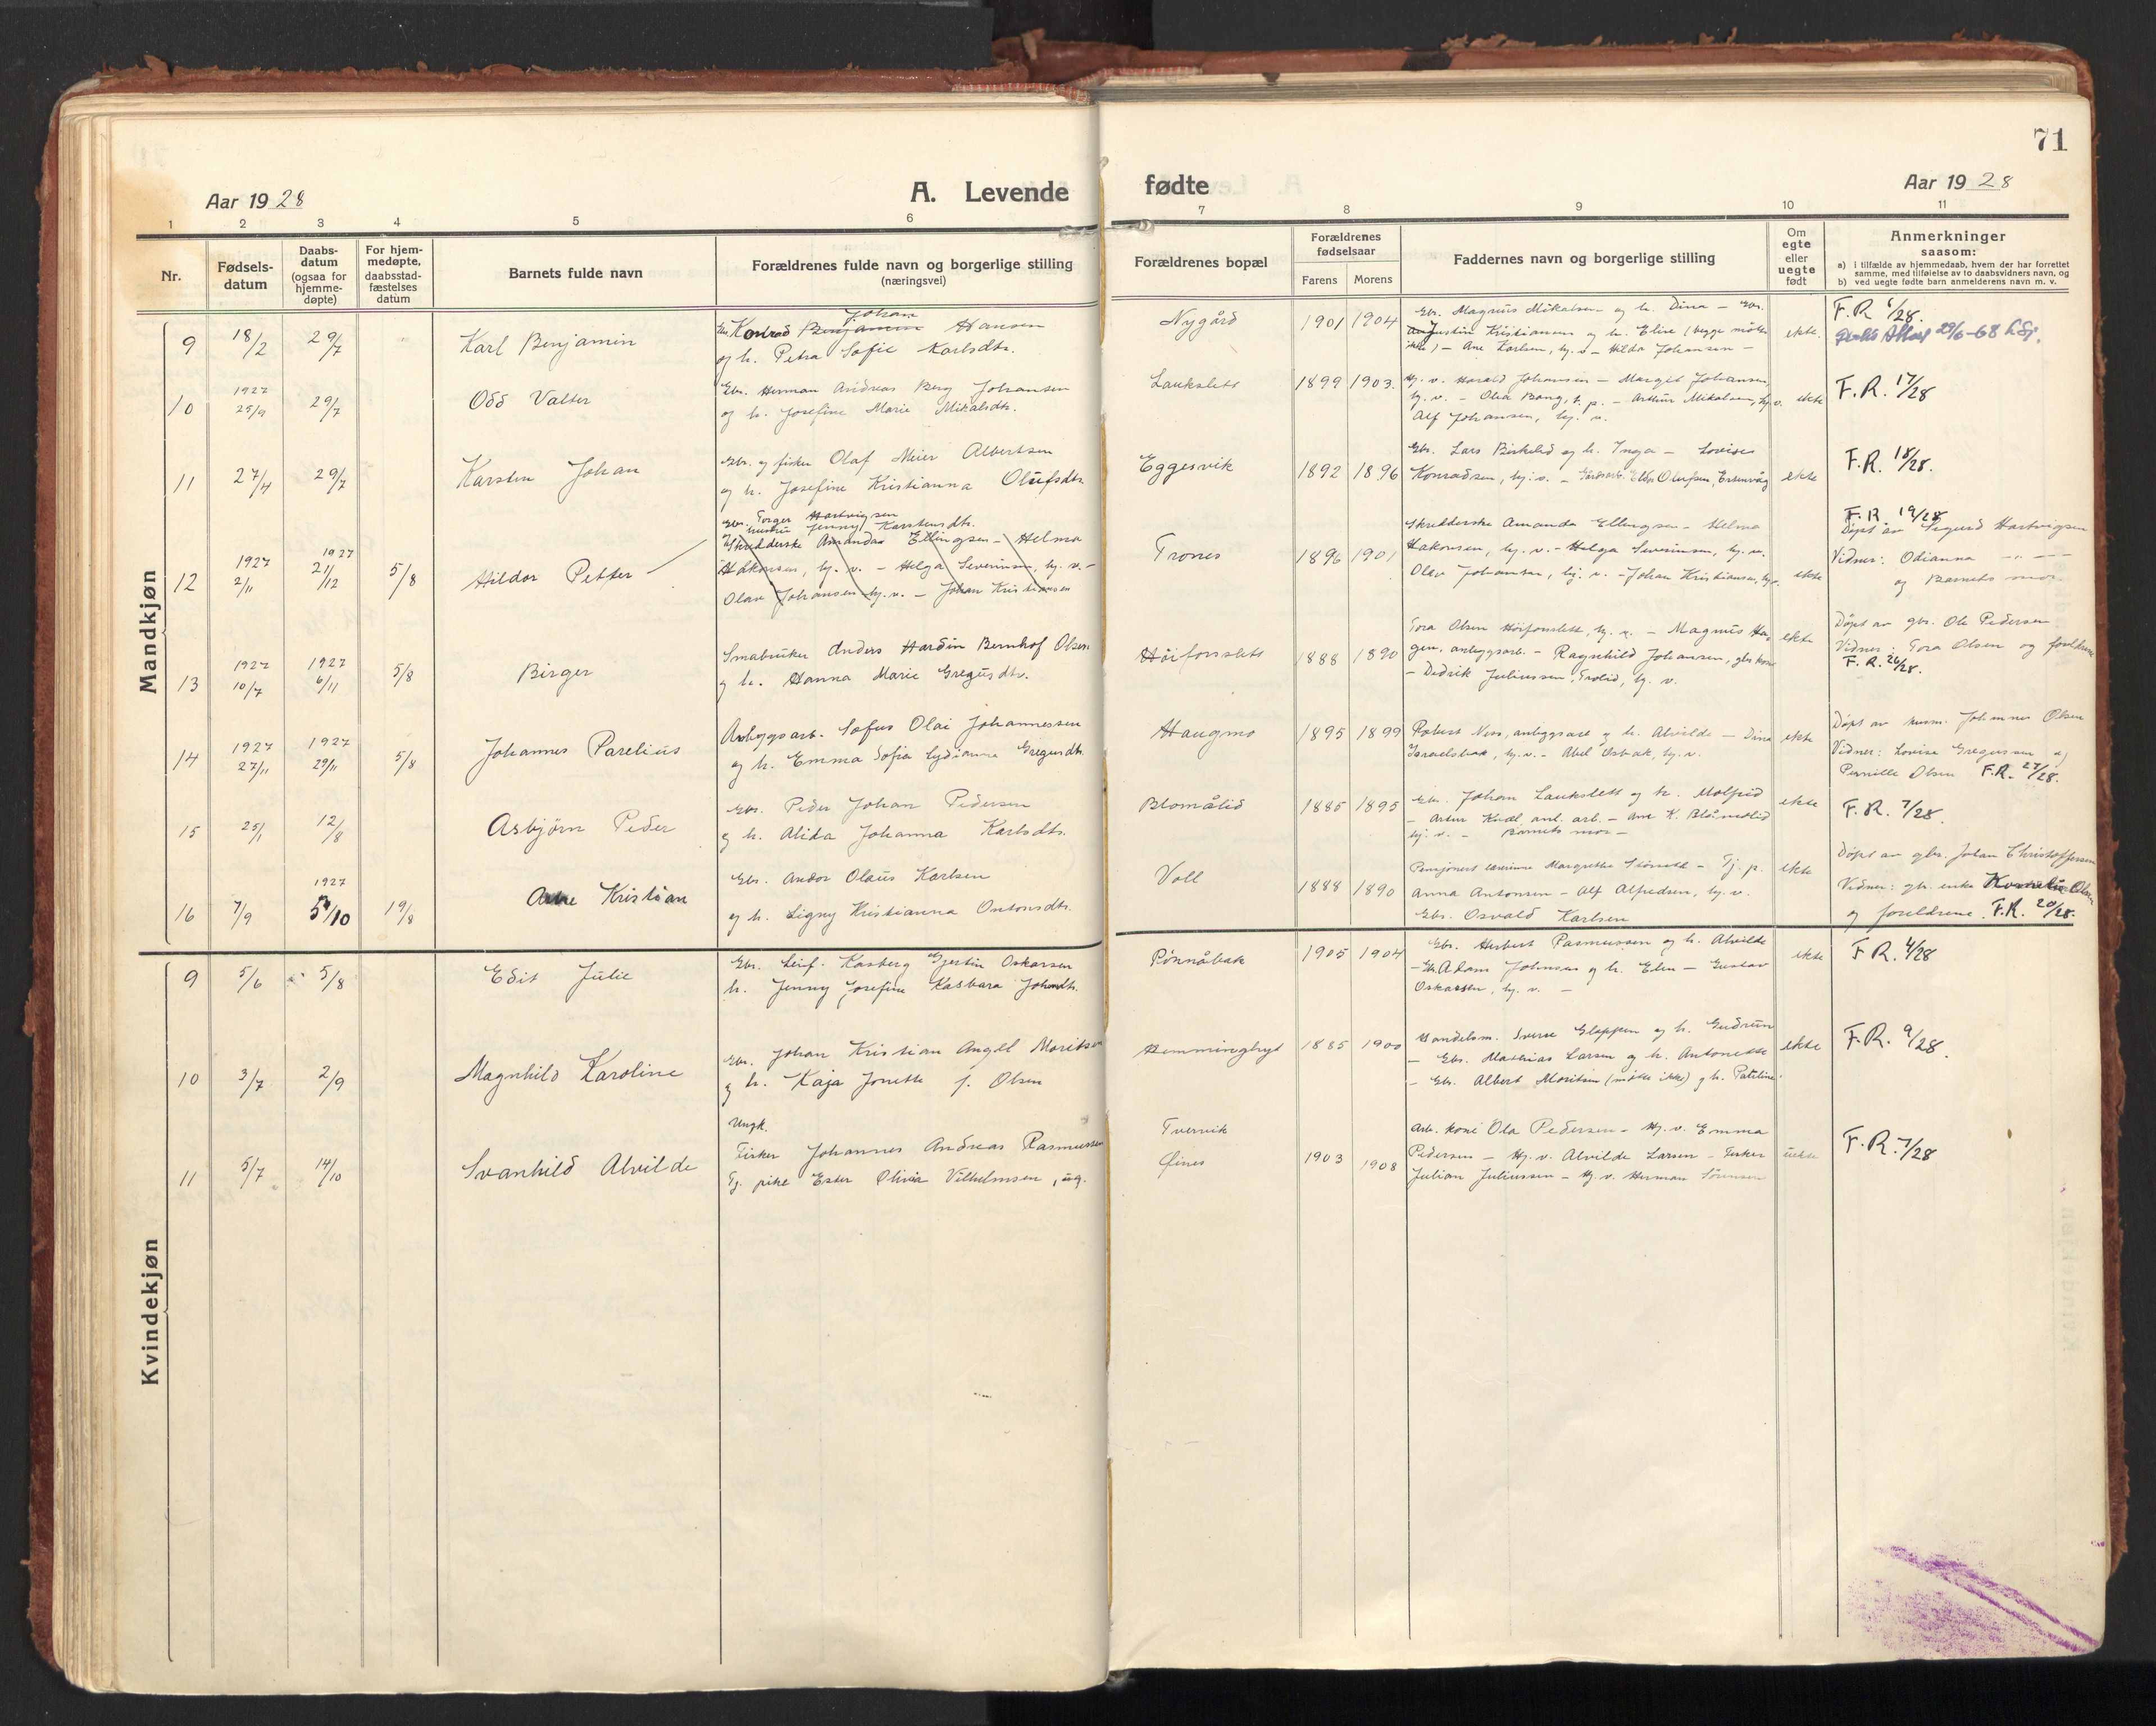 71
Aar 1928
A. Levende
fødte
Aar 1928
1 2 3 4 5 6 7 8 9 10 11
Nr.
Fødsels-
datum
Daabs-
datum
(ogsaa for
hjemme-
døpte)
For hjem-
medøpte,
daabsstad-
fæstelses
datum
Barnets fulde navn
Forældrenes fulde navn og borgerlige stilling
(næringsvei)
Forældrenes bopæl
Forældrenes
fødselsaar
Farens
Morens
Faddernes navn og borgerlige stilling
Om
egte
eller
uegte
født
Anmerkninger
saasom:
a) i tilfælde av hjemmedaab, hvem der har forrettet
samme, med tilføielse av to daabsvidners navn, og
b) ved uegte fødte barn anmelderens navn m. v.
Mandkjøn
9 18/2 29/7 Karl Benjamin
Johan
Konrad Benjamin Hansen
og h. Petra Sofie Karlsdtr.
Nygård 1901 1904
Gbr. Magnus Mikalsen og h. Dina – Gbr.
Augustin Kristiansen og h. Elise (begge møtte
ikke) – Ane Karlsen, hj. v – Hilda Johansen –
ekte.
F.R. 6/28.
29/6-68
10 1927 25/9 29/7 Odd Valter
Gbr. Herman Andreas Berg Johansen
og h. Josefine Marie Mikalsdtr.
Laukslett 1899 1903.
Hj. v. Harald Johansen – Margit Johansen,
hj. v. – Olea Bang, t. p. – Arthur Mikalsen, hj. v.
Alf Johansen, hj. v.
ekte
F.R. 17/28
11 27/4 29/7 Karsten Johan
Gbr. og fisker Olaf Meier Albertsen
og h. Josefine Kristianna Olufsdtr.
Eggesvik 1892 1896
Gbr. Lars Birkelid og h. Inga – Lovise
Konradsen, hj. v. – Olufsen, Ertenvåg
ekte
F.R. 18/28.
12 1927 2/11 1927 21/12 5/8 Hildor Petter
Gbr. Torger Hartvigsen
hustru Jenny Karstensdtr.
Skredderske Amanda Ellingsen – Helma
Håkonsen, hj. v. – Helga Severinsen, hj. v. –
Olav Johansen hj. v. – Johan Kristiansen
Trones 1896 1901
Skredderske Amanda Ellingsen – Helma
Hakonsen, hj. v. – Helga Severinsen, hj. v.
Olav Johansen, hj. v. – Johan Kristiansen, hj. v.
ekte
F.R. 19/28
Døpt av Sigurd Hartvigsen
Vidner: Odianna
og Barnets mor
13 1927 10/7 1927 6/11 5/8 Birger
Småbruker Anders Hardin Bernhof Olsen
og h. Hanna Marie Gregusdtr.
Høiforsslett 1888 1890
Tora Olsen Høiforsslett, hj. v. – Magnus Ha-
gen, anleggsarb. – Ragnhild Johansen, gbr kone
– Didrik Juliussen, Trolid, hj. v.
ekte
Døpt av gbr. Ole Pedersen
Vidner: Tora Olsen og foreldrene
F.R. 26/28.
14 1927 27/11 1927 29/11 5/8 Johannes Parelius
Anleggsarb. Sofus Olai Johannessen
og h. Emma Sofia Lydianna Gregusdtr.
Haugmo 1895 1899
Robert Nøss, anleggsarb og h. Alvilde – Dina
Israelsbak, hj. v. – Abel Osbak, hj. v.
ekte
Døpt av husm. Johannes Olsen
Vidner: Lovise Gregussen og
Pernille Olsen F.R. 27/28.
15 25/1 12/8 Asbjørn Peder
Gbr. Peder Johan Pedersen
og h. Alida Johanna Karlsdtr.
Blomålid 1885 1895
Gbr. Johan Laukslett og h. Molfrid
– Artur Kvæl anl. arb. – Ane K. Blåmolid
hj. v. – Barnets mor –
ekte
F.R. 7/28.
16 7/9 1927 5/10 19/8 Arne Kristian
Gbr. Andor Olaus Karlsen
og h. Signy Kristianna Antonsdtr.
Voll 1888 1890
Pensjonert lærerinne Margrethe – Tj. p.
Anna Antonsen – Alf Alfredsen, hj. v.
Gbr. Osvald Karlsen
ekte
Døpt av gbr. Johan Christoffersen
Vidner: gb. enke Olsen
og foreldrene. F.R. 20/28.
Kvindekjøn
9 5/6 5/8 Edit Julie
Gbr. Leif Kasberg Gjertin Oskarsen
h. Jenny Josefine Kasbara Johansdtr.
Rønnåbak 1905 1904
Gbr. Herbert Rasmussen og h. Alvilde
– Gbr. Adam Johnsen og h. Elen – Gustav
Oskarsen, hj. v. –
ekte
F.R. 4/28
10 3/7 2/9 Magnhild Karoline
Gbr. Johan Kristian Angell Moritsen
og h. Kaja Jonette f. Olsen
Hemminghyt 1885 1900
Handelsm. Sverre Gleppen og h. Gudrun
– Gbr. Mathias Larsen og h. Antonette
– Gbr. Albert Moritsen (møtte ikke) og h. Petrine.
ekte
F.R. 9/28.
11 5/7 14/10 Svanhild Alvilde
Ungk.
Fisker Johannes Andreas Rasmussen
Tj. pike Ester Olivia Vilhelmsen, ug.
Tvervik
Øines
1903 1908
Arb. kone Ola Pedersen – Hj. v. Emma
Pedersen – Hj. v. Alvilde Larsen – Fisker
Julian Juliussen – Hj. v. Herman Sørensen
uekte
F.R. 7/28